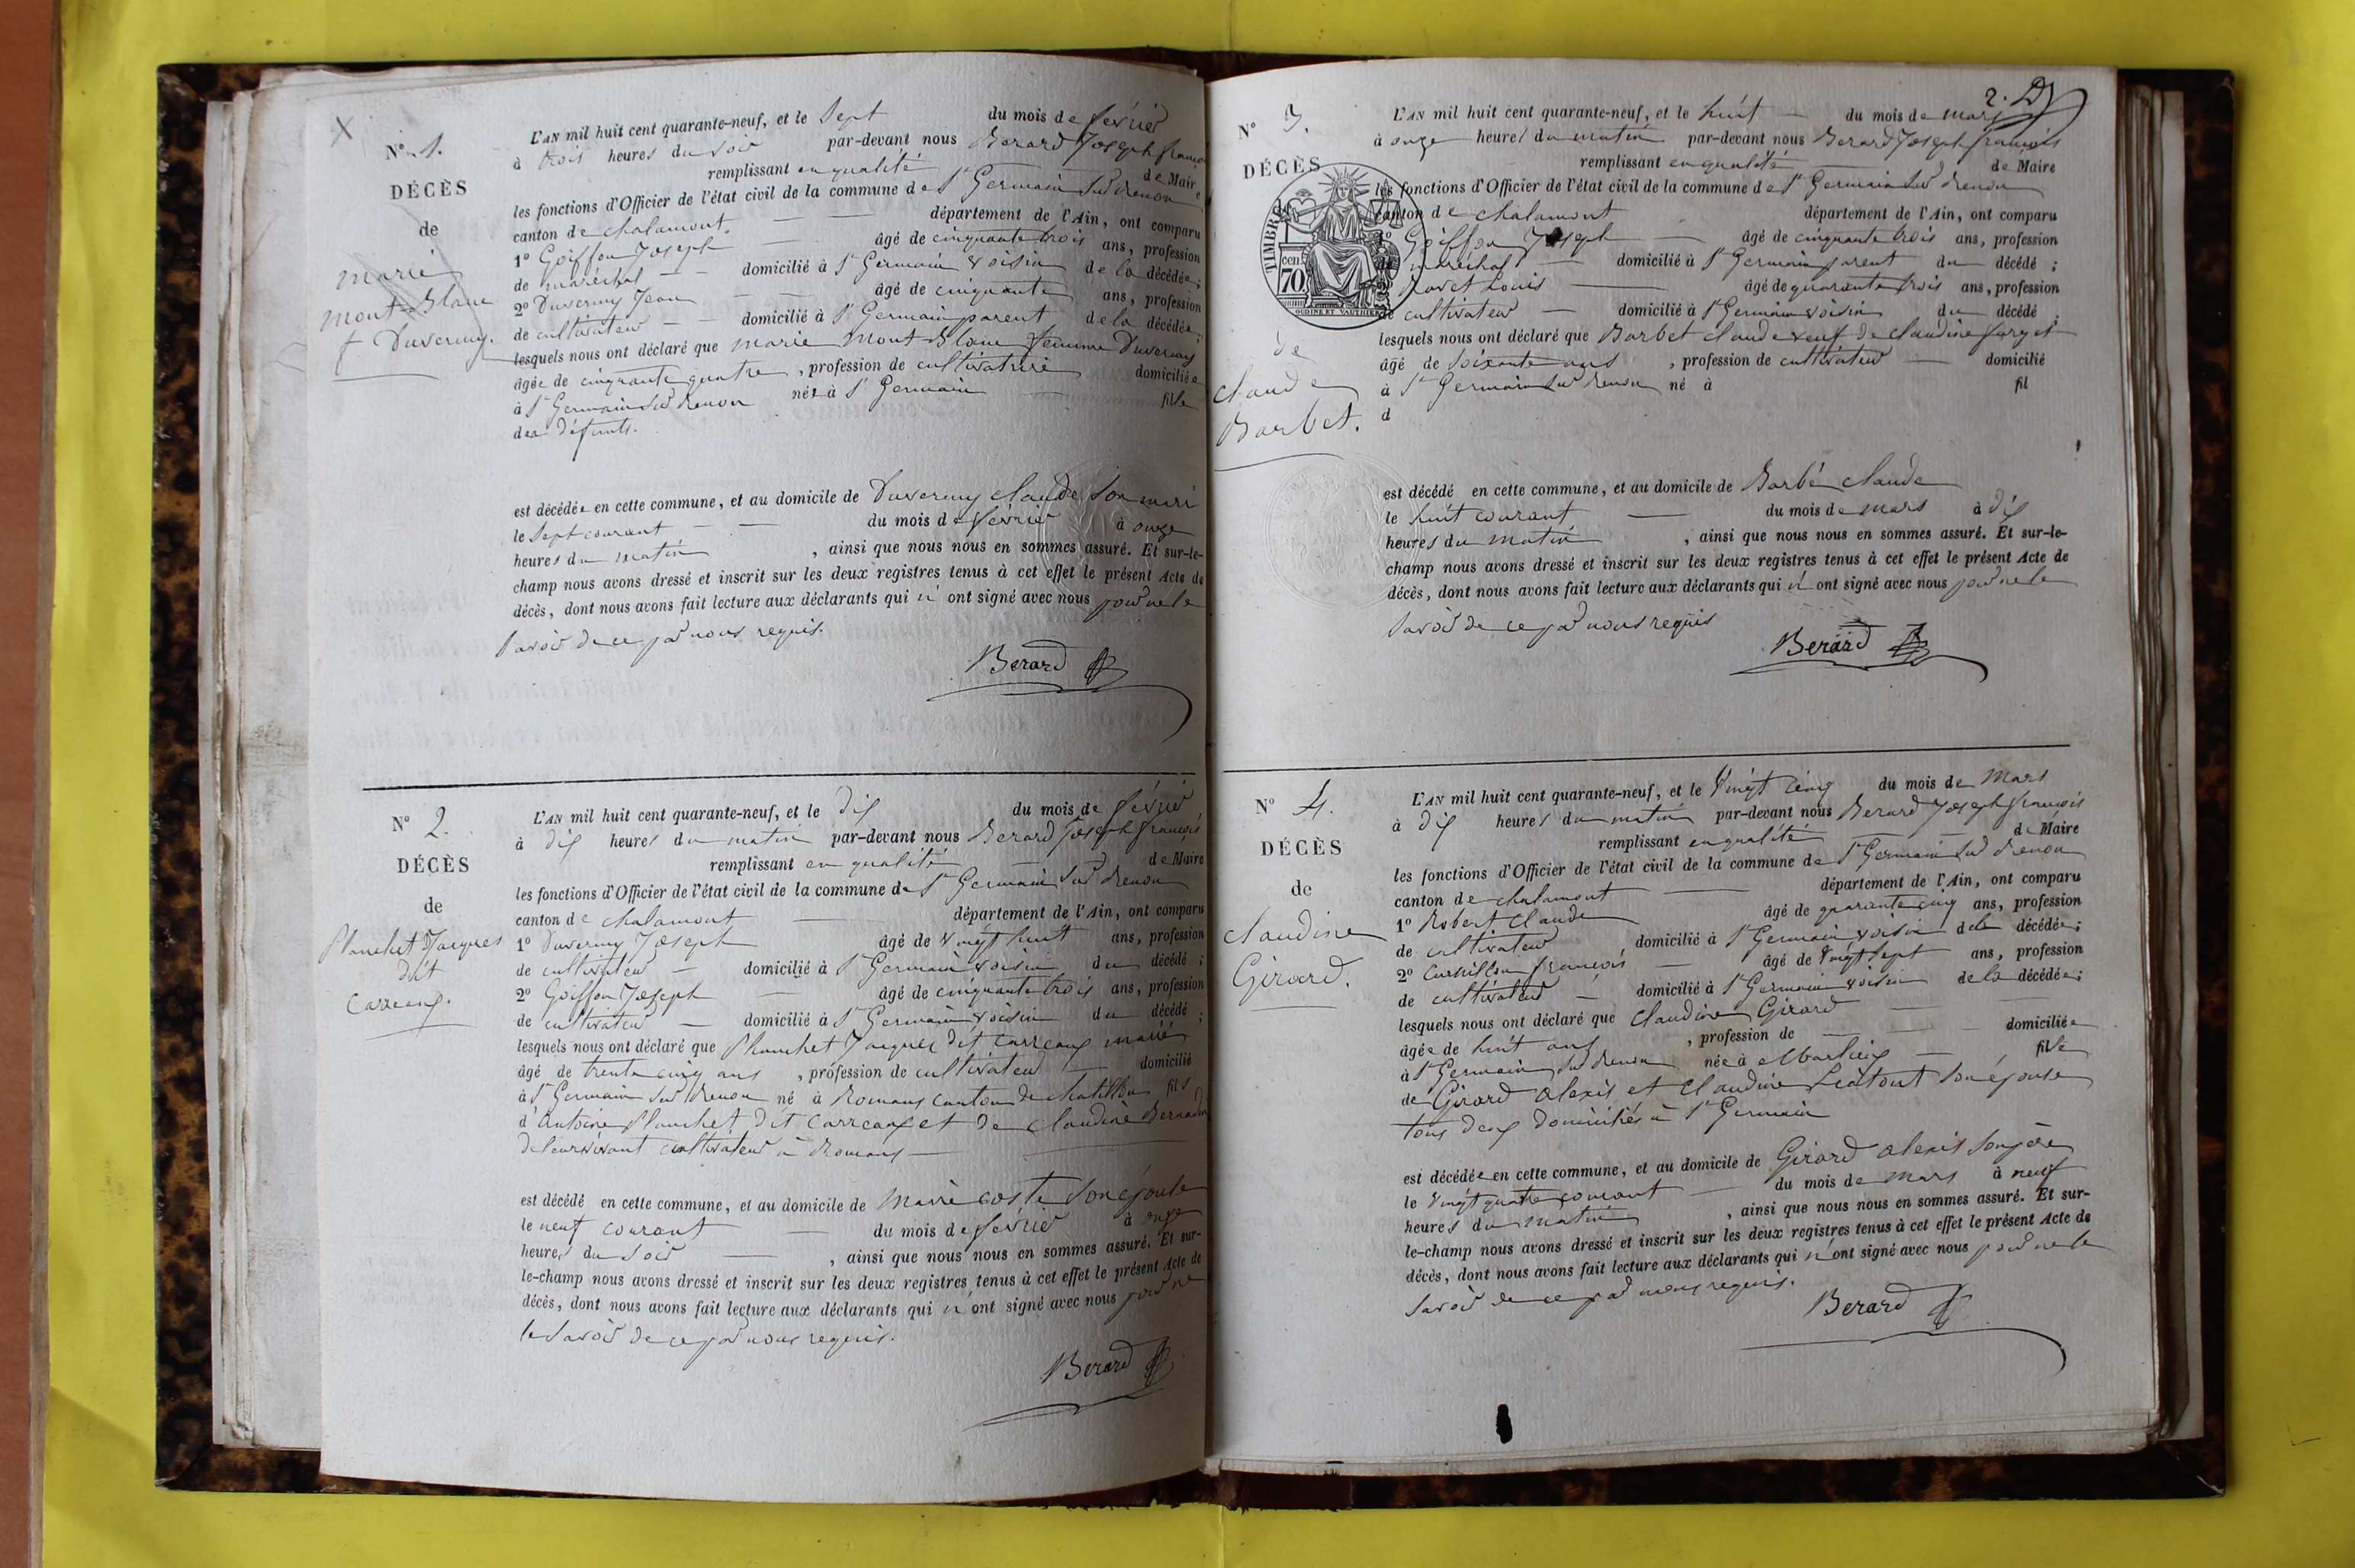 X
N° 1.
DÉCÈS
de
marie
mont-Blanc
f Duvernay.
L'AN mil huit cent quarante-neuf, et le Sept du mois de février
à trois heures du soir par-devant nous Berard Joseph françois
remplissant en qualité de Maire
les fonctions d'Officier de l'état civil de la commune de St Germain sur renon
canton de chalamont. département de l'Ain, ont comparu
1° Goiffon Joseph âgé de cinquante trois ans, profession
de maréchal domicilié à St Germain voisin de la décédée ;
2° Duvernay Jean âgé de cinquante ans, profession
de cultivateur domicilié à St Germain parent de la décédée ;
lesquels nous ont déclaré que marie Mont-Blanc femme Duvernay
âgée de cinquante quatre , profession de cultivatrice domiciliée
à St Germain sur renon née à St Germain fille
des défunts.
est décédée en cette commune, et au domicile de Duvernay claude son mari
le sept courant du mois de février à onze
heures du matin , ainsi que nous nous en sommes assuré. Et sur-le-
champ nous avons dressé et inscrit sur les deux registres tenus à cet effet le présent Acte de
décès, dont nous avons fait lecture aux déclarants qui n' ont signé avec nous pour ne le
savoir de ce par nous requis.
Berard
N° 2.
DÉCÈS
de
Planchet Jacques
dit
Carreaux.
L'AN mil huit cent quarante-neuf, et le dix du mois de février
à dix heures du matin par-devant nous Berard Joseph françois
remplissant en qualité de Maire
les fonctions d'Officier de l'état civil de la commune de St Germain sur renon
canton de chalamont département de l'Ain, ont comparu
1° Duvernay Joseph âgé de vingt huit ans, profession
de cultivateur domicilié à St Germain voisin du décédé ;
2° Goiffon Joseph âgé de cinquante trois ans, profession
de cultivateur domicilié à St Germain voisin du décédé ;
lesquels nous ont déclaré que Planchet Jacques dit carreaux marié
âgé de trente cinq ans , profession de cultivateur domicilié
à St Germain sur renon né à Romans canton de chatillon fils
d'Antoine Planchet dit carreaux et de claudine
de leur vivant cultivateur à Romans
est décédé en cette commune, et au domicile de Marie coste son épouse
le neuf courant du mois de février à onze
heures du soir , ainsi que nous nous en sommes assuré. Et sur-
le-champ nous avons dressé et inscrit sur les deux registres tenus à cet effet le présent Acte de
décès, dont nous avons fait lecture aux déclarants qui n' ont signé avec nous pour ne
le savoir de ce par nous requis.
Berard
2.
N° 3.
DÉCÈS
de
claude
Barbet.
TIMBRE
cen
70
OUDINE ET VAUTHIER
L'AN mil huit cent quarante-neuf, et le huit du mois de mars
à onze heures du matin par-devant nous Berard Joseph françois
remplissant en qualité de Maire
les fonctions d'Officier de l'état civil de la commune de St Germain sur renon
canton de chalamont département de l'Ain, ont comparu
1° Goiffon Joseph âgé de cinquante trois ans, profession
de maréchal domicilié à St Germain parent du décédé ;
2° Louis âgé de quarante trois ans, profession
de cultivateur domicilié à St Germain voisin du décédé
lesquels nous ont déclaré que Barbet claude veuf de claudine forget
âgé de soixante ans , profession de cultivateur domicilié
à St Germain sur renon né à fil
d
est décédé en cette commune, et au domicile de Barbé claude
le huit courant du mois de mars à dix
heures du matin , ainsi que nous nous en sommes assuré. Et sur-le-
champ nous avons dressé et inscrit sur les deux registres tenus à cet effet le présent Acte de
décès, dont nous avons fait lecture aux déclarants qui n' ont signé avec nous pour ne le
savoir de ce par nous requis
Berard
N° 4.
DÉCÈS
de
claudine
Girard.
L'AN mil huit cent quarante-neuf, et le vingt cinq du mois de Mars
à dix heures du matin par-devant nous Berard Joseph françois
remplissant en qualité de Maire
les fonctions d'Officier de l'état civil de la commune de St Germain sur renon
canton de chalamont département de l'Ain, ont comparu
1° Robert claude âgé de quarante cinq ans, profession
de cultivateur , domicilié à St Germain voisin de la décédée ;
2° françois âgé de vingt sept ans, profession
de cultivateur domicilié à St Germain voisin de la décédée ;
lesquels nous ont déclaré que claudine Girard
âgée de huit ans , profession de domiciliée
à St Germain sur renon née à Marlieux fille
de Girard alexis et claudine son épouse
tous deux domiciliés à St Germain
est décédée en cette commune, et au domicile de Girard alexis son père
le vingt quatre courant du mois de mars à neuf
heures du matin , ainsi que nous nous en sommes assuré. Et sur-
le-champ nous avons dressé et inscrit sur les deux registres tenus à cet effet le présent Acte de
décès, dont nous avons fait lecture aux déclarants qui n'ont signé avec nous pour ne le
savoir de ce par nous requis.
Berard